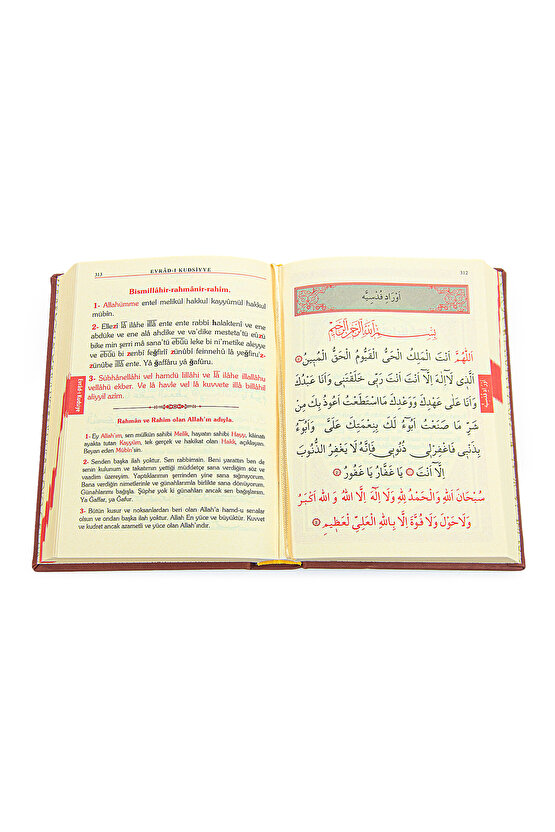 313
EVRÂD-I KUDSİYYE
Bismillâhir-rahmânir-rahim.
1- Allahümme entel melikül hakkul kayyûmül hakkul
mübîn.
2- Ellezî lâ ilâhe illâ ente ente rabbî halaktenî ve ene
abdüke ve ene alâ ahdike ve va'dike mesteta'tü eûzü
bike min şerri mâ sana'tü ebûü leke bi ni'metike aleyye
ve ebûü bi zenbî feğfirlî zünûbî feinnehû lâ yeğfiru'z-
zünûbe illâ ente. Yâ ğaffâru yâ ğafûru.
3- Sübhânellâhi vel hamdü lillâhi ve lâ ilâhe illallâhu
vellâhü ekber. Ve lâ havle vel lâ kuvvete illâ billâhil
aliyyil azîm.
Rahmân ve Rahim olan Allah'ın adıyla.
1- Ey Allah'ım, sen mülkün sahibi Melik, hayatın sahibi Hayy, kâinatı
ayakta tutan Kayyûm, tek gerçek ve hakikat olan Hakk, açıklayan,
Beyan eden Mübîn'sin.
2- Senden başka ilah yoktur. Sen rabbimsin. Beni yarattın ben de
senin kulunum ve takatımın yettiği müddetçe sana verdiğim söz ve
vaadim üzereyim. Yaptıklarımın şerrinden yine sana sığınıyorum.
Bana verdiğin nimetlerinle ve günahlarımla birlikte sana dönüyorum.
Günahlarımı bağışla. Şüphe yok ki günahları ancak sen bağışlarsın.
Ya Gaffar, ya Gafur.
3- Bütün kusur ve noksanlardan beri olan Allah'a hamd-u senalar
olsun ve ondan başka ilah yoktur. Allah En yüce ve büyüktür. Kuvvet
ve kudret ancak azametli ve yüce olan Allah'ındır.
Evrâd-ı Kudsiyye
312
اَوْرَادِ قُدْسِيَّه
بِسْمِ اللّٰهِ الرَّحْمٰنِ الرَّحِيمِ
اَللّٰهُمَّ اَنْتَ الْمَلِكُ الْحَقُّ الْقَيُّومُ الْحَقُّ الْمُبِينُ ١
اَلَّذِى لَآاِلٰهَ اِلَّا اَنْتَ اَنْتَ رَبِّى خَلَقْتَنِى وَاَنَا عَبْدُكَ
وَاَنَا عَلٰى عَهْدِكَ وَوَعْدِكَ مَااسْتَطَعْتُ اَعُوذُ بِكَ مِنْ
شَرِّ مَا صَنَعْتُ اَبُوءُ لَكَ بِنِعْمَتِكَ عَلَىَّ وَاَبُوءُ
بِذَنْبِى فَاغْفِرْلِى ذُنُوبِى فَاِنَّهُ لَا يَغْفِرُ الذُّنُوبَ
اِلَّا اَنْتَ يَا غَفَّارُ يَا غَفُورُ ٢
سُبْحَانَ اللّٰهِ وَالْحَمْدُ لِلّٰهِ وَلَا اِلٰهَ اِلَّا اللّٰهُ وَاللّٰهُ اَكْبَرُ
وَلَا حَوْلَ وَلَا قُوَّةَ اِلَّا بِاللّٰهِ الْعَلِىِّ الْعَظِيمِ ٣
اَوْرَادِ قُدْسِيَّه